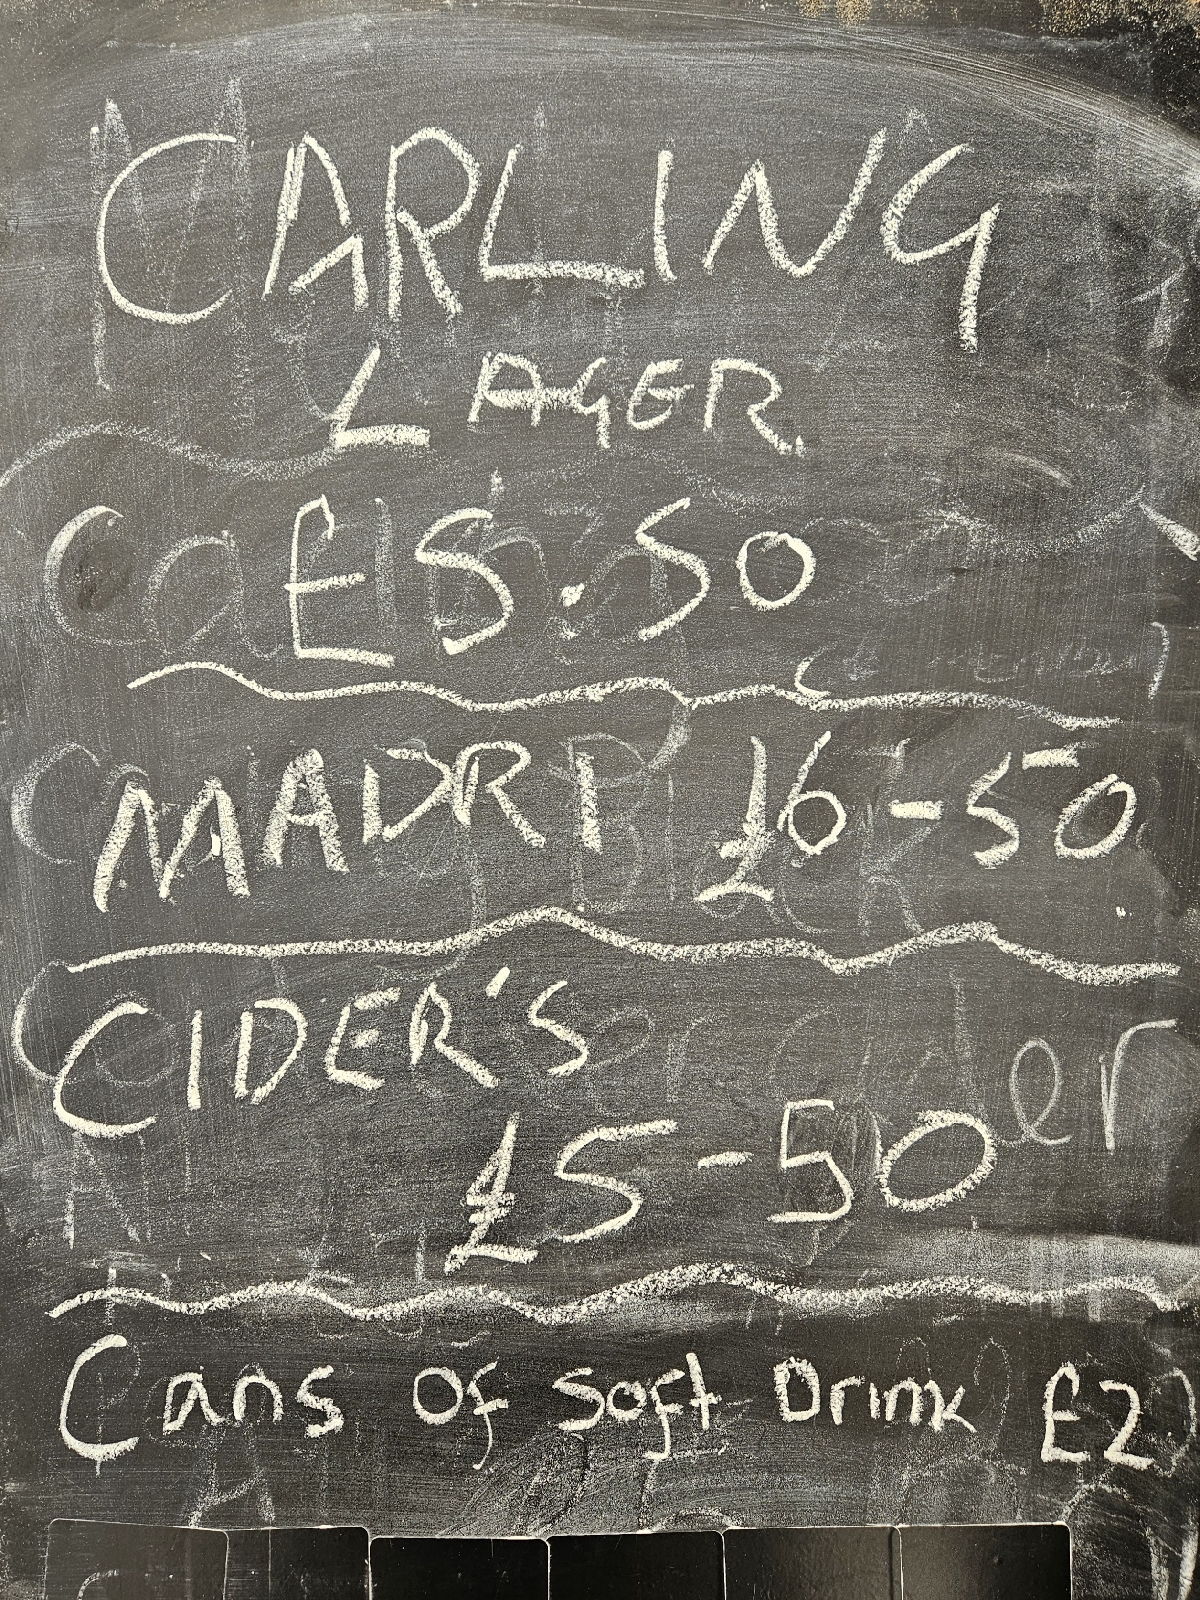 CARLING
LAGER
£5.50
MADRI £6-50
CIDER'S
£5-50
Cans of soft Drink £2